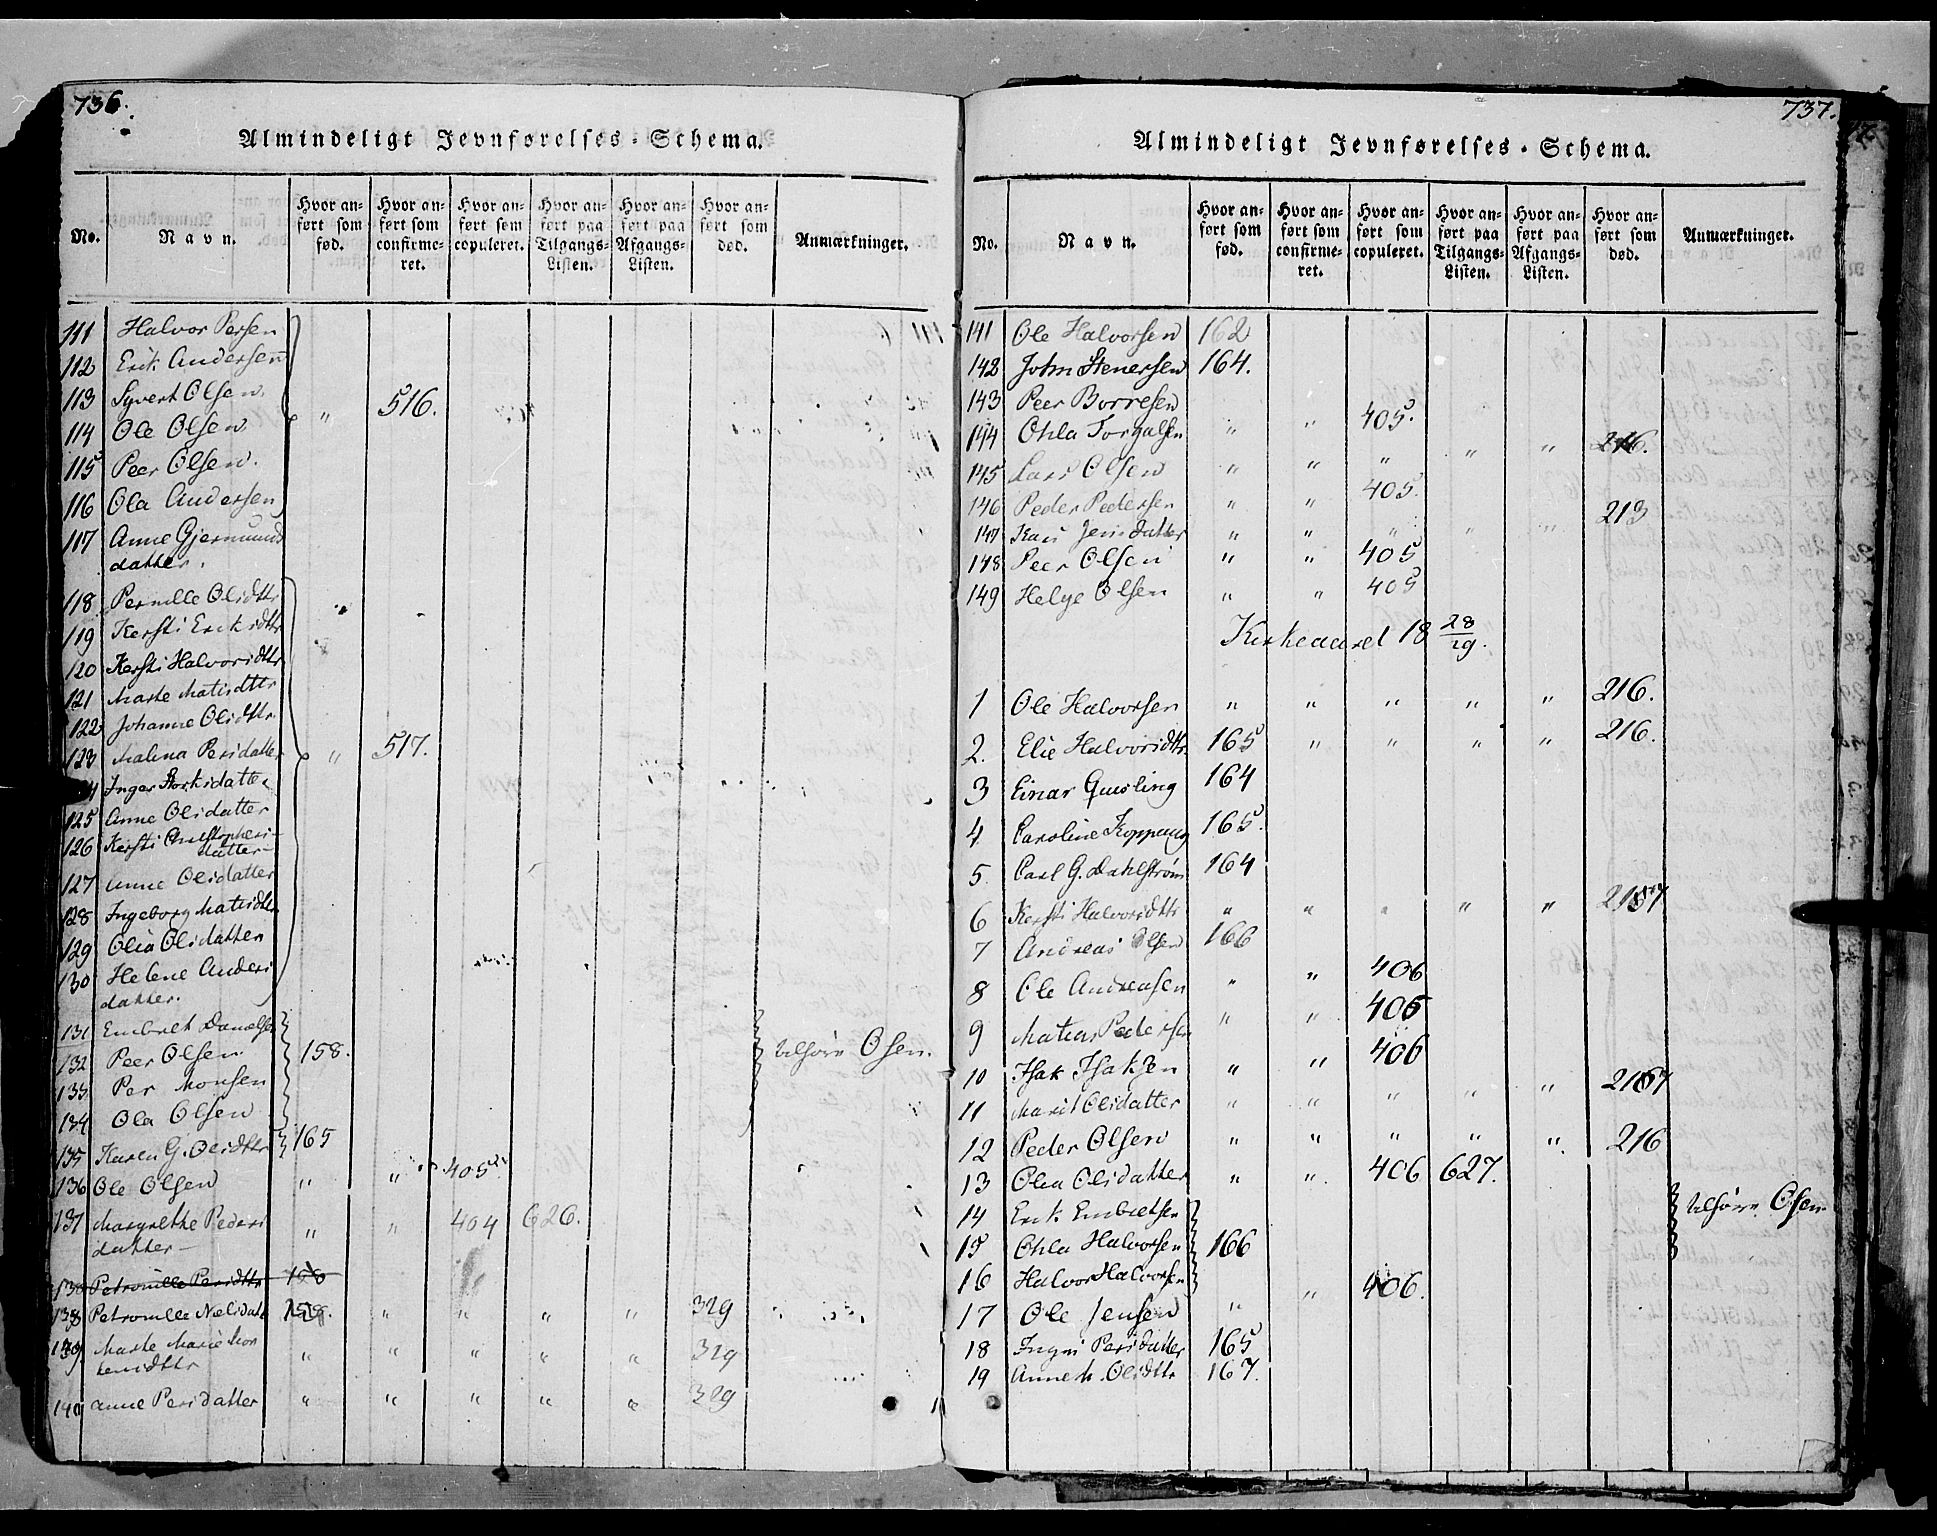 736.
Almindeligt Jevnførelses-Schema.
No. Navn. Hvor anført som fød. Hvor anført som confirmeret. Hvor anført som copuleret. Hvor anført paa Tilgangs-Listen. Hvor anført paa Afgangs-Listen. Hvor anført som død. Anmærkninger.
111 Halvor Persen
112 Erik Andersen
113 Syvert Olsen
114 Ole Olsen " 516.
115 Peer Olsen.
116 Ola Andersen
117 Anne Gjermunds
datter.
118 Pernille Olsdttr
119 Kersti Eriksdttr
120 Kersti Halvorsdttr
121 Marte Matisdttr
122 Johanne Olsdttr.
123 Malena Persdatter " 517.
Inger
125 Anne Olsdatter
126 Kersti Christophers-
datter-
127 Anne Olsdatter
128 Ingeborg Matisdttr
129 Olia Olsdatter
130 Helene Anders
datter.
131 Embret Danielsen
132 Peer Olsen 158. tilhøre Osen.
133 Per Monsen
134 Ola Olsen
135 Karen G. Olsdttr 165
136 Ole Olsen " " 405
137 Margrethe Peders " " 404 626.
datter-
138 Petronille Persdttr 158
138 Petronille Nelsdatt 158. " " " " 329
139 Marte Marie Mor " " " " " 329
tensdttr
140 Anne Persdatter " " " " " 329
737.
Almindeligt Jevnførelses-Schema.
No. Navn. Hvor anført som fød. Hvor anført som confirmeret. Hvor anført som copuleret. Hvor anført paa Tilgangs-Listen. Hvor anført paa Afgangs-Listen. Hvor anført som død. Anmærkninger.
141 Ole Halvorsen 162
142 John Stenersen 164.
143 Peer Borresen
144 Ohla Torgalsen " " 405. " " 216.
145 Lars Olsen " " "
146 Peder Pedersen " " 405.
147 Kari Jensdatter " " " " " 213
148 Peer Olsen " " 405
149 Helge Olsen " " 405
Kirkeaaret 18 28/29.
1 Ole Halvorsen " " " " " 216.
2. Elie Halvorsdttr 165 " " " " 216.
3 Einar Qvisling 164
4 Caroline Koppang 165.
5 Carl G. Dahlstrøm 164
6 Kersti Halvorsdttr " " " " " 217
7 Andreas Olsen 166
8 Ole Andreasen " " 406
9 Matias Pedersen " " 406
10 Isak Isaksen " " 406
11 Marit Olsdatter " " " " " 217
12 Peder Olsen " " " " " 216
13 Olea Olsdatter " " 406 627.
14 Erik Embretsen tilhøre Osen
15 Ohla Halvorsen 166
16 Halvor Halvorsen
17 Ole Jensen " " 406.
18 Ingri Persdatter 165
19 Anne M. Olsdttr 167.